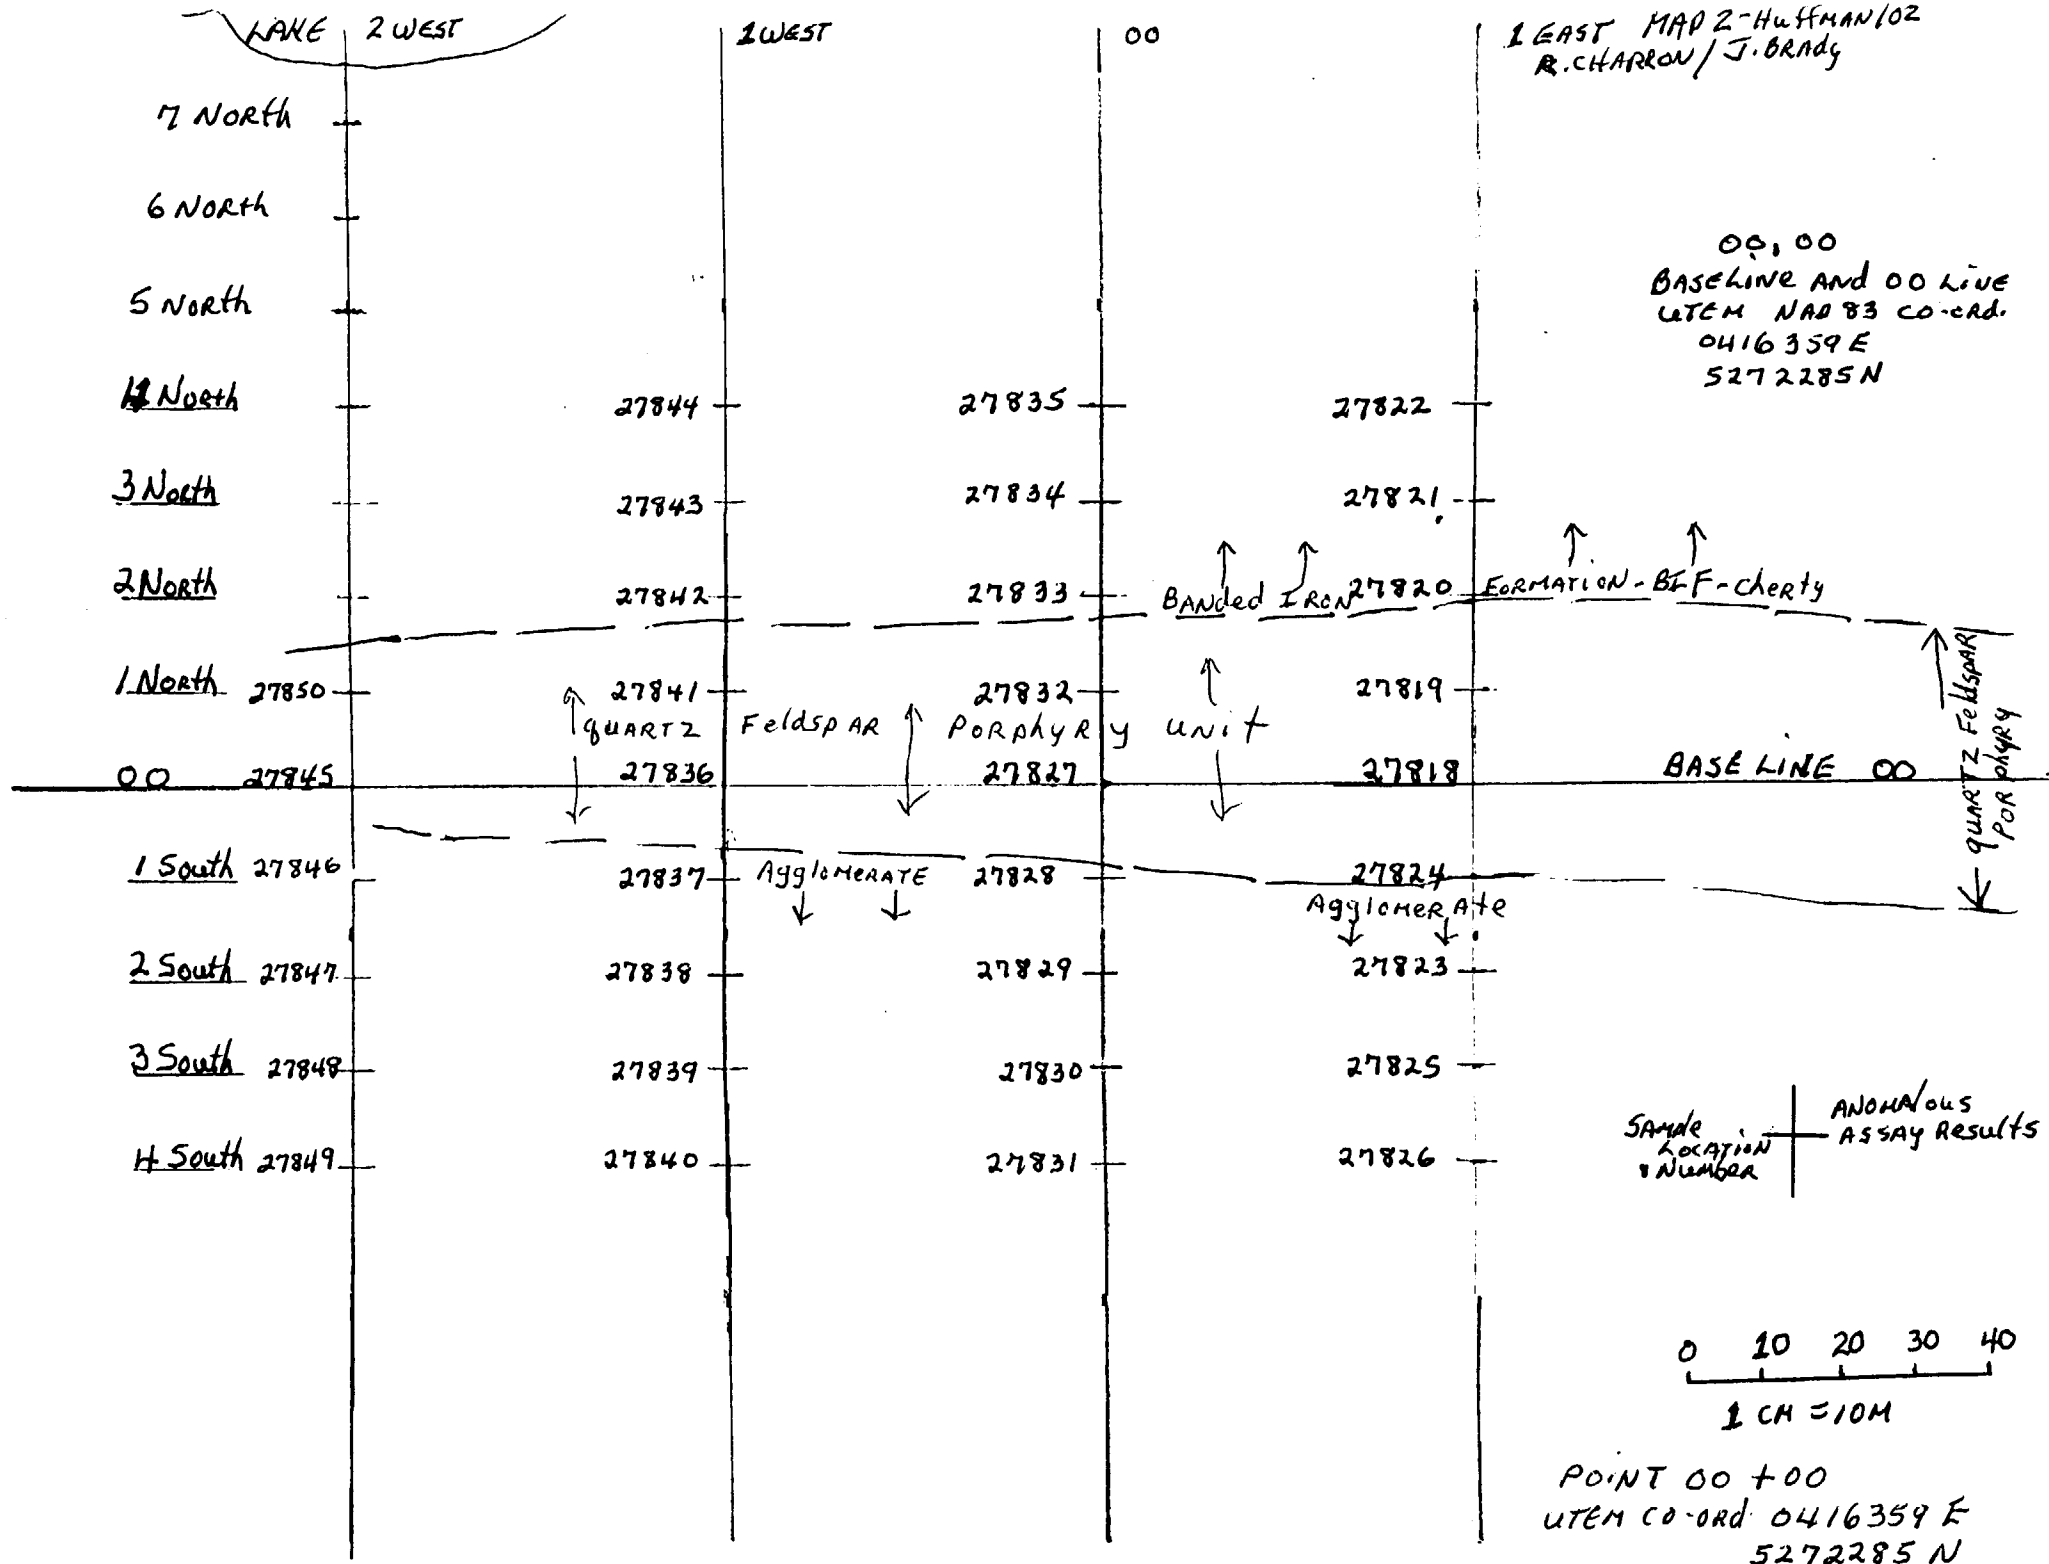 LAKE 2 WEST 1 WEST 00 1 EAST MAP 2-HUFFMAN/02
R. CHARRON / J. BRADY
7 NORTH
6 NORTH
5 NORTH
00, 00
BASELINE AND 00 LINE
UTEM NAD 83 CO-ORD.
0416359 E
5272285 N
4 NORTH 27844 27835 27822
3 North 27843 27834 27821
2 NORTH 27842 27833 27820
BANDED IRON FORMATION - BIF - CHERTY
1 NORTH 27850 27841 27832 27819
QUARTZ FELDSPAR PORPHYRY UNIT
QUARTZ FELDSPAR
PORPHYRY
00 27845 27836 27827 27818 BASE LINE 00
1 South 27846 27837 AgglomERATE 27828 27824
AgglomERATE
2 South 27847 27838 27829 27823
3 South 27848 27839 27830 27825
4 South 27849 27840 27831 27826
SAMPLE
LOCATION
& NUMBER
ANOMALOUS
ASSAY RESULTS
0 10 20 30 40
1 CM = 10M
POINT 00 + 00
UTEM CO-ORD 0416359 E
5272285 N